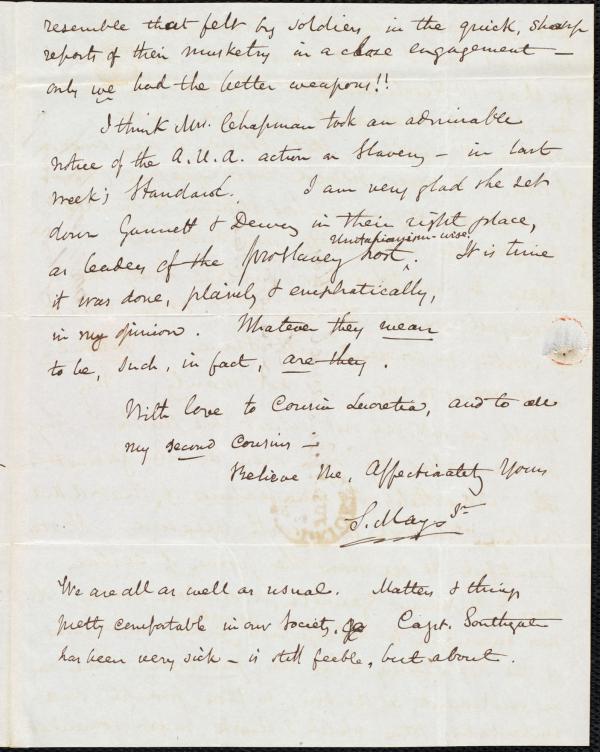 resemble that felt by soldiers in the quick, sharp
reports of their musketry in a close engagement —
only we had the better weapons!!
I think Mrs. Chapman took an admirable
notice of the A.U.A. action on Slavery — in last
week's Standard. I am very glad she set
down Gannett & Dewey in their right place,
as leaders of the proslavery host Unitarianism-wise. It is time
it was done, plainly & emphatically,
in my opinion. Whatever they mean
to be, such, in fact, are they.
With love to Cousin Lucretia, and to all
my second cousins —
Believe me, Affectionately Yours
S. May Jr
We are all as well as usual. Matters & things
pretty comfortable in our Society. Capt. Southgate
has been very sick — is still feeble, but about.